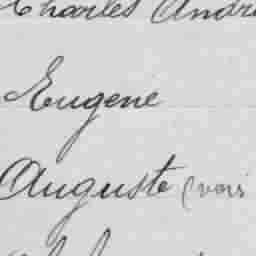 Charles André
Eugène
Auguste (voir